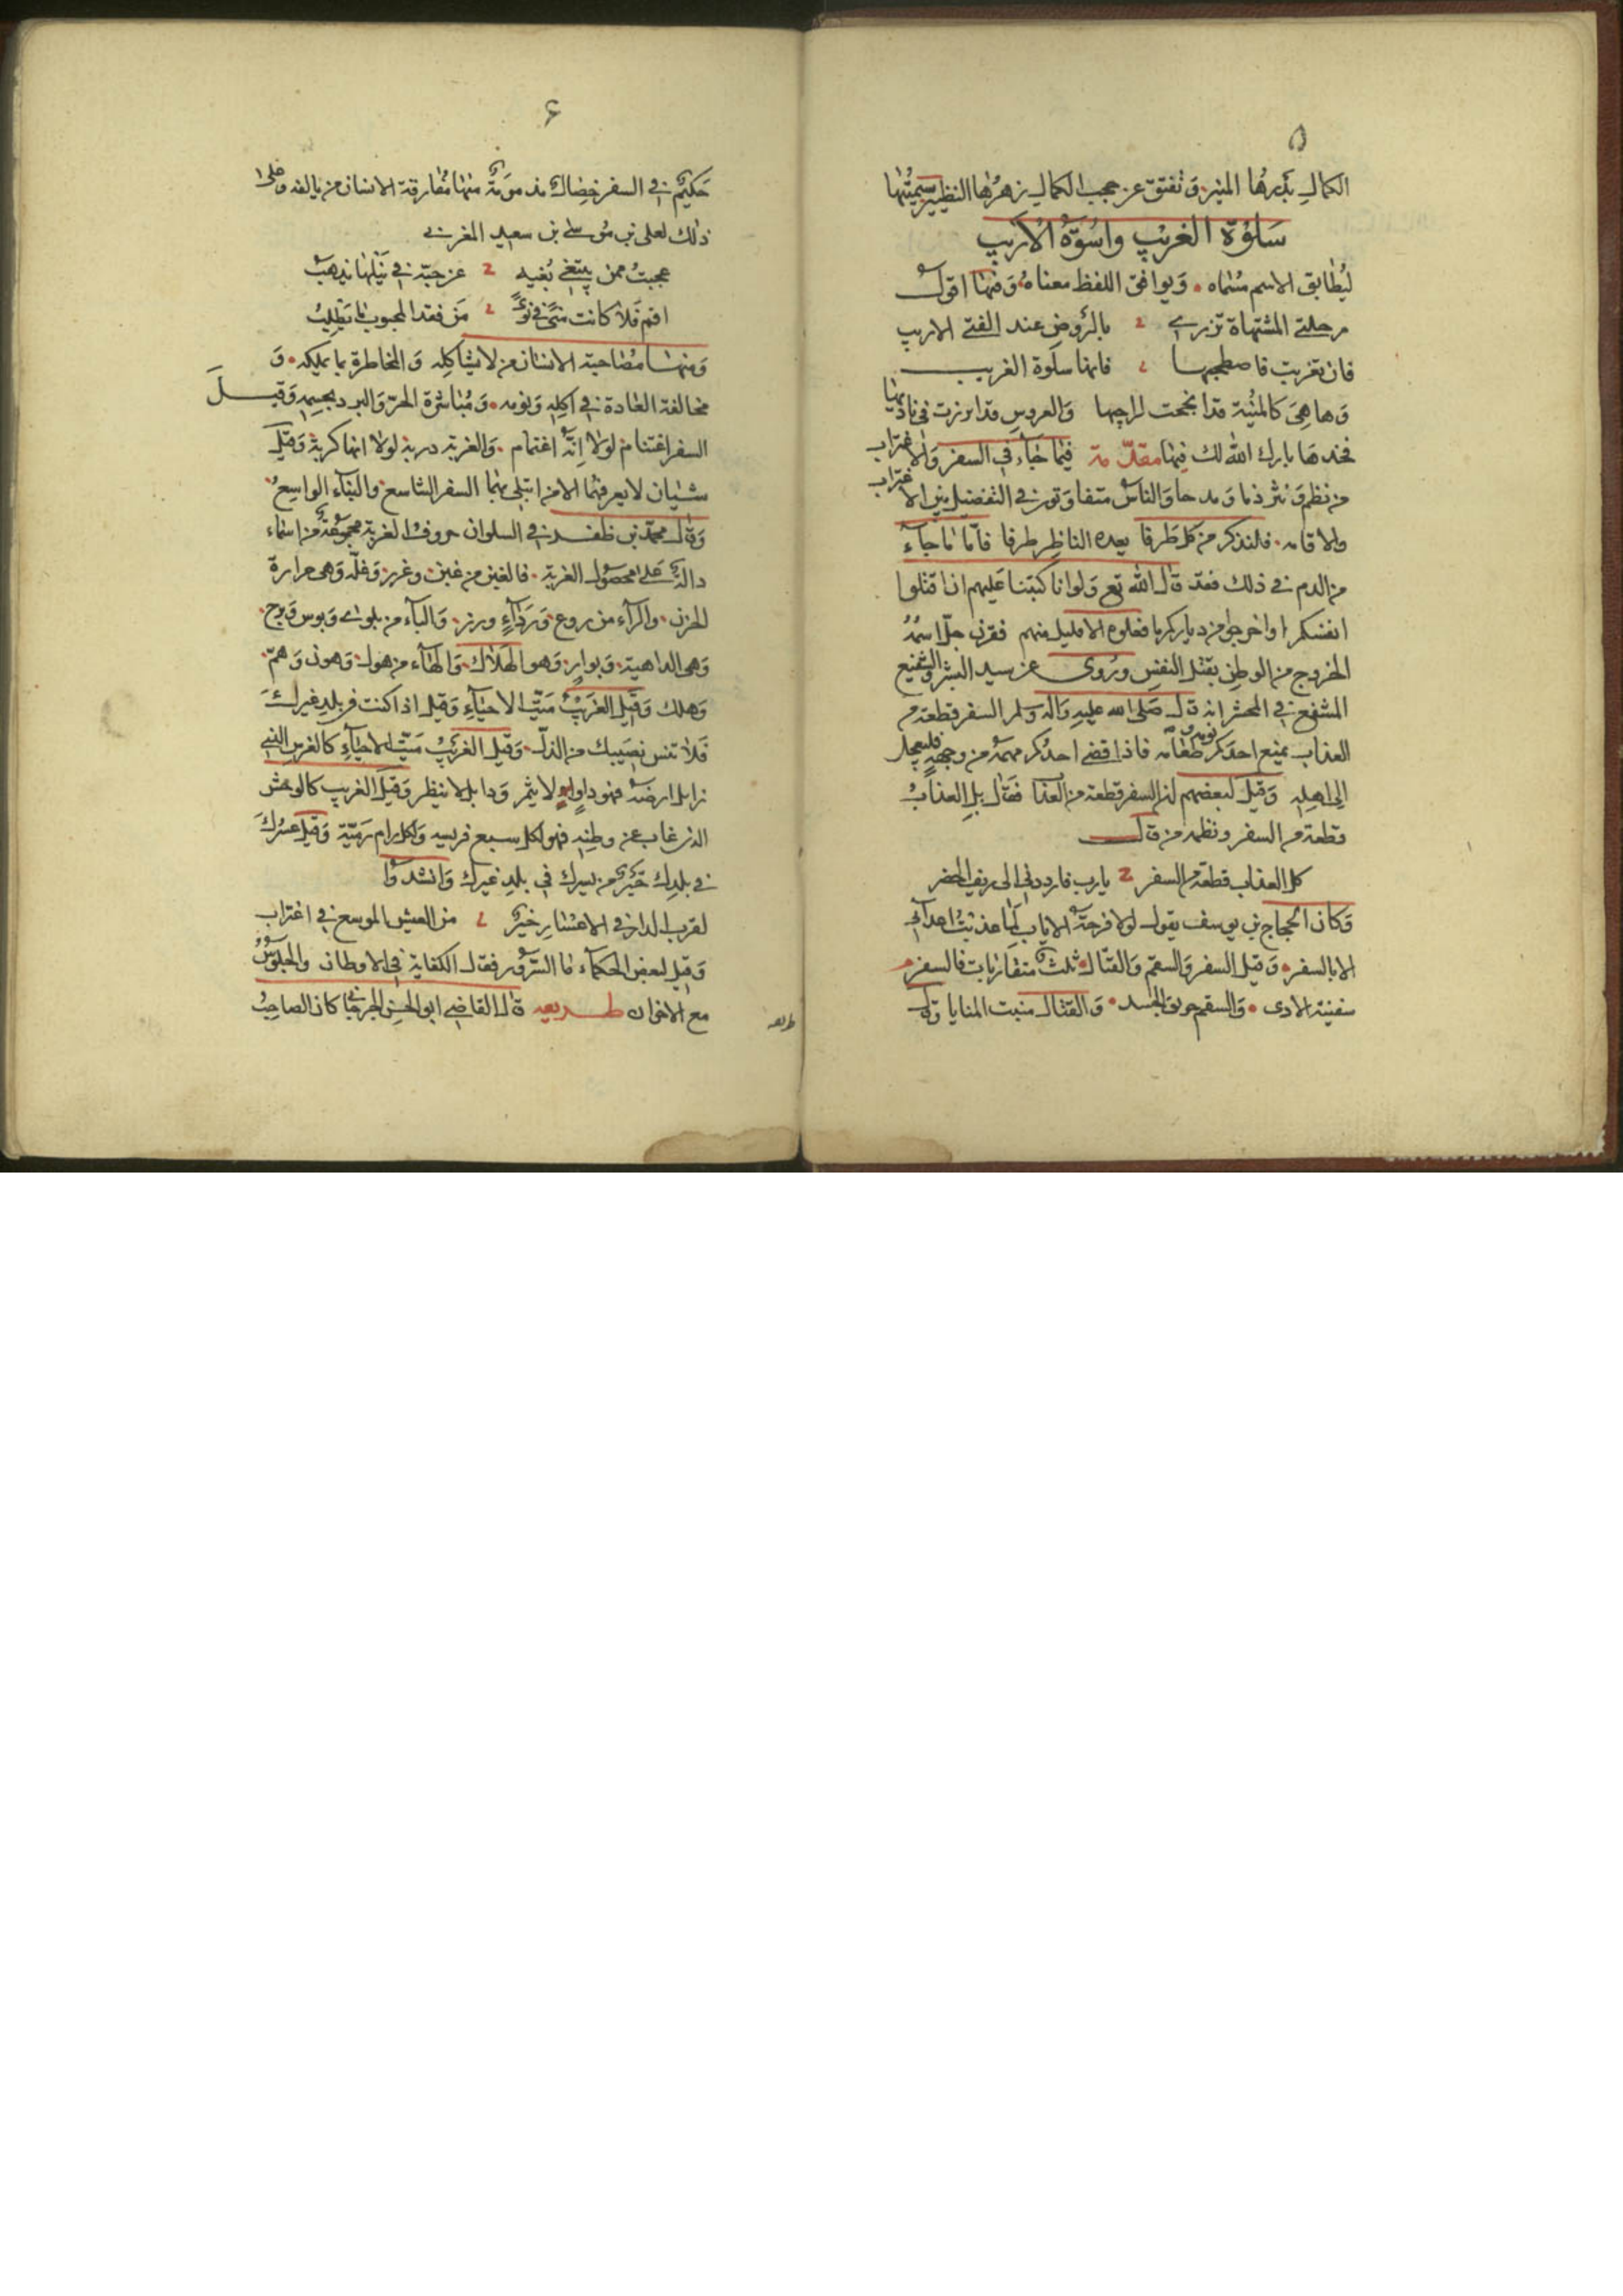 ٥
الكمال بدرها المنير وتفتق عن حجب الكمال زهرها النظير سميتها
سلوة الغريب واسوة الاريب
ليطابق الاسم مسماه ويوافق اللفظ معناه وفيها اقول
رحلتي المشتهاة تزري بالروض عند الفتى الاريب
فان تغربت فاصطحبها فانها سلوة الغريب
وها هي كالمنية قد انجحت لراجيها والعروس قد ابرزت في ناديها
فخذها بارك الله لك فيها مقدمة فيما جاء في السفر والاغتراب
من نظم ونثر ذما ومدحا والناس متفاوتون في التفضيل بين الاغتراب
والاقامه فلنذكر من كل طرفا يحده الناظر طرفا فاما ما جاء
من الذم في ذلك فقد قال الله تع ولو انا كتبنا عليهم ان اقتلوا
انفسكم او اخرجوا من دياركم ما فعلوه الا قليل منهم فقرن جل اسمه
الخروج من الوطن بقتل النفس وروى عن سيد البشر والشفيع
المشفع في المحشر انه قال صلى الله عليه واله وسلم السفر قطعة من
العذاب يمنع احدكم نومه وطعامه فاذا قضى احدكم مهمه من وجهه فليعجل
الى اهله وقيل لبعضهم ان السفر قطعة من العذاب فقال بل العذاب
قطعة من السفر ونظمه من قال
كل العذاب قطعة من السفر يا رب فارددني الى ريف الحضر
وكان الحجاج بن يوسف يقول لولا فرحة الاياب لما عذبت اعدائي
الا بالسفر وقيل السفر والسقم والقتال ثلث متقاربات فالسفر
سفينة الاذى والسقم حريق الجسد والقتال منبت المنايا وقال
طريفه
٦
حكيم في السفر خصال مذمومة منها مفارقة الانسان من يالفه وعلى
ذلك لعلى بن موسى بن سعيد المغربي
عجبت ممن يبتغي بغيه عن حبه في نيلها يذهب
اقم فلا كانت منى في نوى من فقد المحبوب ما يطلب
ومنها مصاحبة الانسان من لا يشاكله والمخاطرة بما يملكه و
مخالفة العادة في اكله ونومه ومباشرة الحر والبرد بجسمه وقيل
السفر اغتنام لولا انه اغتمام والغربة دربة لولا انها كربة وقيل
شيئان لا يعرفهما الا من ابتلى بهما السفر الشاسع والبناء الواسع
وقال محمد بن ظفر في السلوان حروف الغربة مجموعة من اسماء
دالة على محصول الغربة فالغين من غبن وغرر وغلة وهى حرارة
الحزن والراء من روع وردآء ورزء والبآء من بلوى وبوس وبرح
وهى الداهية وبوار وهو الهلاك والهآء من هول وهون وهم
وهلك وقيل الغريب ميت الاحياء وقيل اذا كنت في بلد غيرك
فلا تنس نصيبك من الذل وقيل الغريب ميت الاحياء كالغرس الذي
زايل ارضه فهو ذاو لا يثمر وذابل لا ينظر وقيل الغريب كالوحش
الذي غاب عن وطنه فهو لكل سبع فريسه ولكل رام رمية وقيل عسرك
في بلدك خير من يسرك في بلد غيرك وانشدوا
لقرب الدار في الاعسار خير من العيش الموسع في اغتراب
وقيل لبعض الحكماء ما السرور فقال الكفاية في الاوطان والجلوس
مع الاخوان طريفه قال القاضي ابو الحسن الجرجاني كان الصاحب